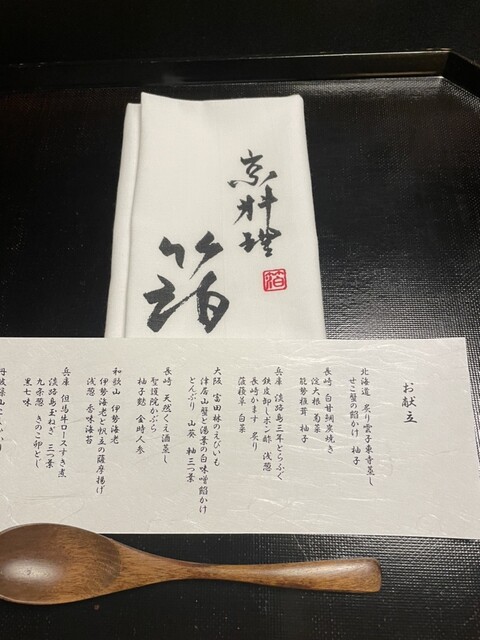 京料理
箔
お献立
北海道 炙り雲子東寺蒸し
せこ蟹の餡かけ 柚子
長崎 白甘鯛炭焼き
淀大根 菊菜
能勢椎茸 柚子
兵庫 淡路島三年とらふぐ
鉄皮卸しポン酢 浅葱
長崎かます 炙り
菠薐草 白菜
大阪 富田林のえびいも
津居山蟹と湯葉の白味噌餡かけ
とんぶり 山葵 軸三つ葉
長崎 天然くえ酒蒸し
聖護院かぶら
柚子麩 金時人参
和歌山 伊勢海老
伊勢海老と帆立の薩摩揚げ
浅葱 香味海苔
兵庫 但馬牛ロースすき煮
淡路島玉ねぎ 三つ葉
九条葱 きのこ卵とじ
黒七味